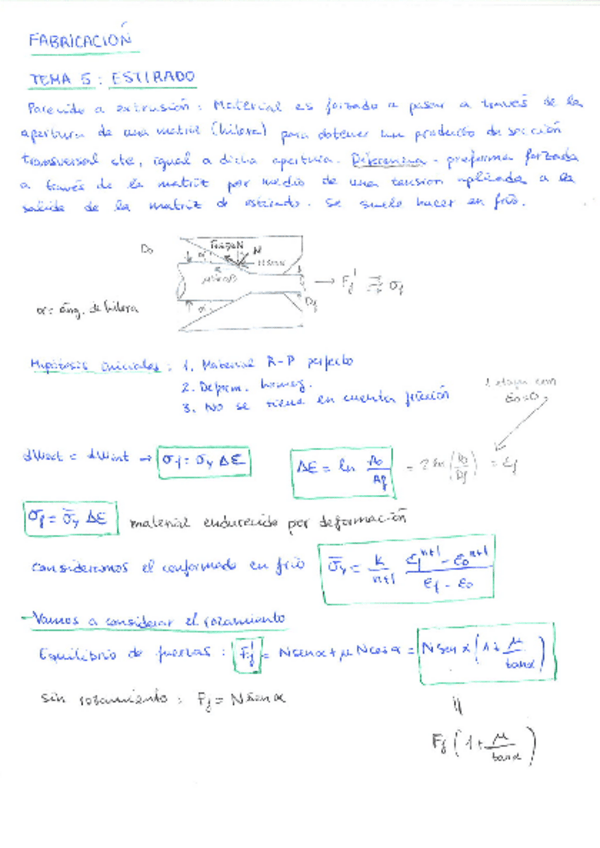 FABRICACIÓN
TEMA 5: ESTIRADO
Parecido a extrusión: Material es forzado a pasar a través de la
apertura de una matriz (hilera) para obtener un producto de sección
transversal cte, igual a dicha apertura. Diferencia - preforma forzada
a través de la matriz por medio de una tension aplicada a la
salida de la matriz de estirado. Se suele hacer en frío.
D₀
N
→ F_f' ⇒ σ_f
D_f
α = áng. de hilera
Hipótesis iniciales: 1. Material R-P perfecto
2. Deform. homog.
3. No se tiene en cuenta fricción
1 etapa con
ε₀=0
dWext = dWint → σ_f = σ_y Δε
Δε = ln A₀/A_f = 2 ln (D₀/D_f) = ε_f
σ_f = σ̄_y Δε material endurecido por deformación
consideramos el conformado en frío σ̄_y = K/(n+1) (ε_f^(n+1) - ε₀^(n+1))/(ε_f - ε₀)
- Vamos a considerar el rozamiento
Equilibrio de fuerzas: F_f' = N sen α + μ N cos α = N sen α (1 + μ/tan α)
sin rozamiento: F_f = N sen α
||
F_f (1 + μ/tan α)